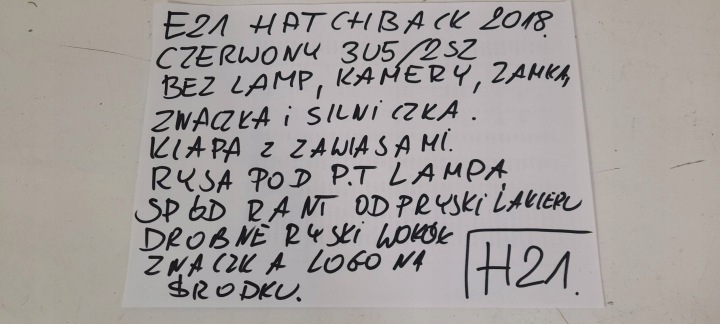 E21 HATCHBACK 2018.
CZERWONY 3U5/2SZ
BEZ LAMP, KAMERY, ZAMKA,
ZNACZKA i SILNICZKA.
KLAPA Z ZAWIASAMI.
RYSA POD P.T LAMPĄ
SPÓD RANT ODPRYSKI LAKIERU
DROBNE RYSKI WOKÓŁ
ZNACZKA LOGO NA
ŚRODKU.
H21.